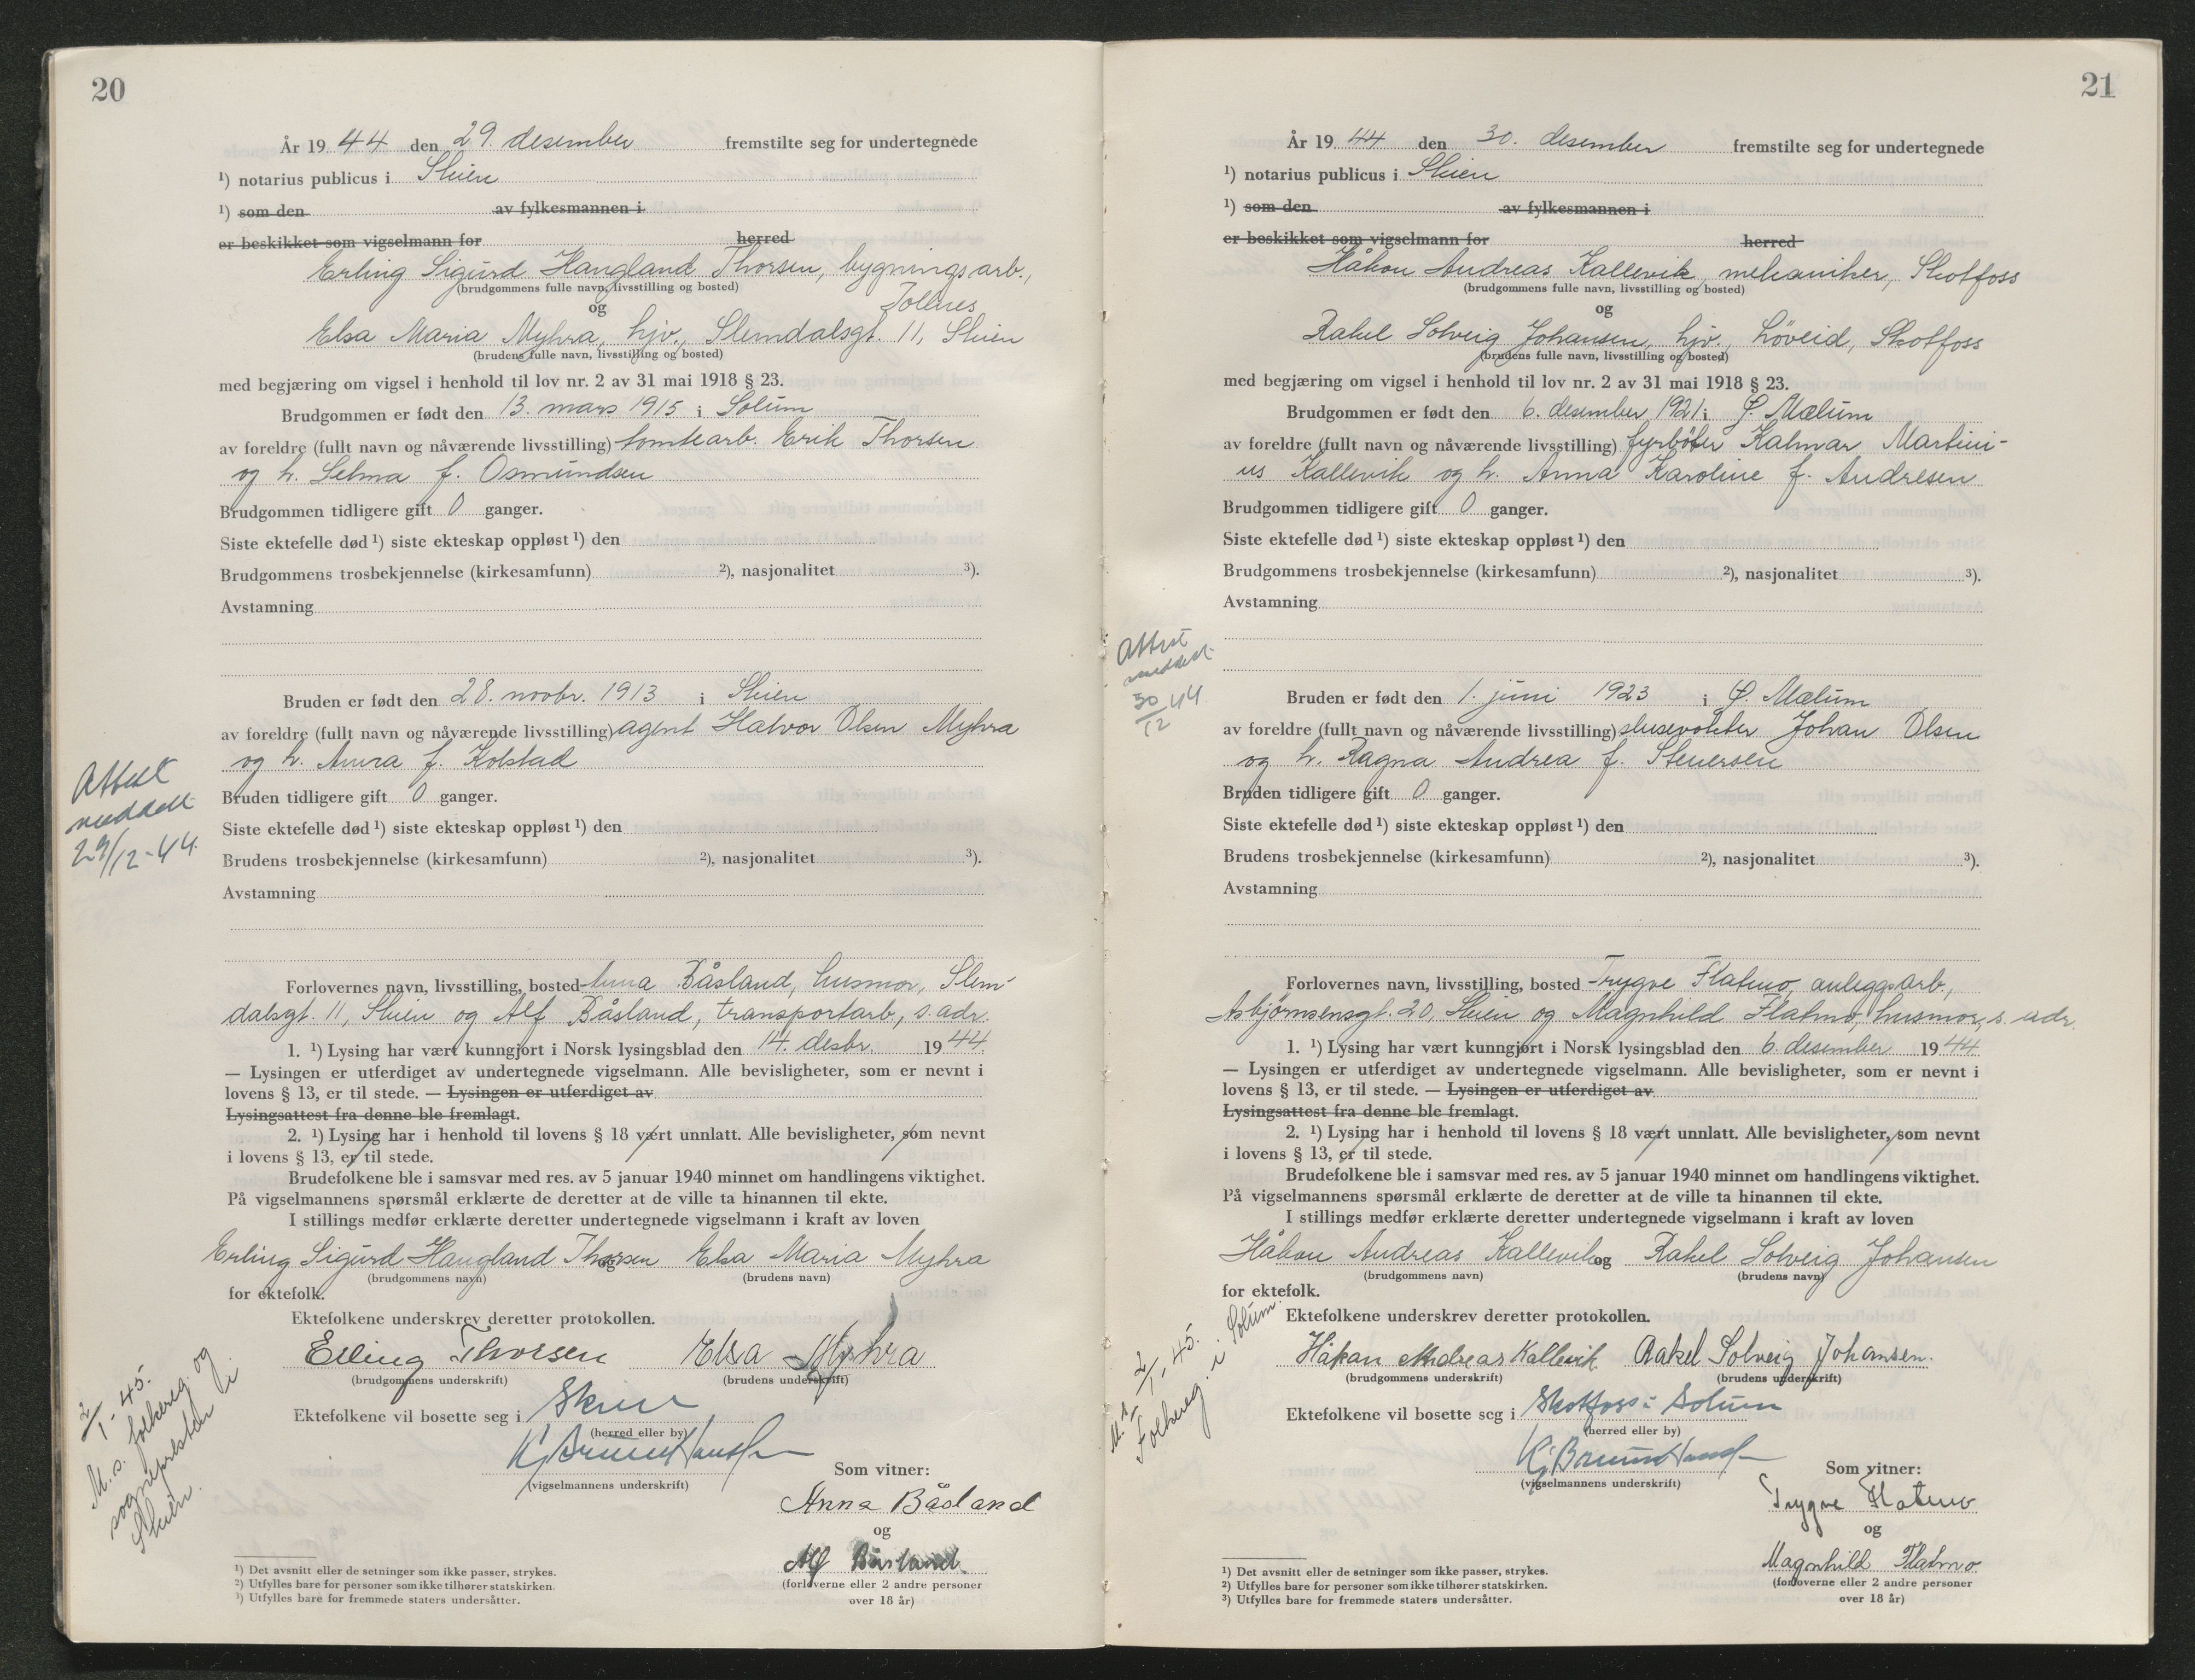 20
År 19 44 den 29. desember fremstilte seg for undertegnede
¹) notarius publicus i Skien
¹) som den av fylkesmannen i
er beskikket som vigselmann for herred
Erling Sigurd Haugland Thorsen, bygningsarb.,
(brudgommens fulle navn, livsstilling og bosted)
Tollnes
og
Elsa Maria Myhra, hjv., Slemdalsgt. 11, Skien
(brudens fulle navn, livsstilling og bosted)
med begjæring om vigsel i henhold til lov nr. 2 av 31 mai 1918 § 23.
Brudgommen er født den 13. mars 1915 i Solum
av foreldre (fullt navn og nåværende livsstilling) tomtearb. Erik Thorsen
og h. Selma f. Osmundsen
Brudgommen tidligere gift 0 ganger.
Siste ektefelle død ¹) siste ekteskap oppløst ¹) den
Brudgommens trosbekjennelse (kirkesamfunn) ²), nasjonalitet ³).
Avstamning
Bruden er født den 28. novbr. 1913 i Skien
av foreldre (fullt navn og nåværende livsstilling) agent Halvor Olsen Myhra
og h. Anna f. Kolstad
Attest
meddelt
29/12-44.
Bruden tidligere gift 0 ganger.
Siste ektefelle død ¹) siste ekteskap oppløst ¹) den
Brudens trosbekjennelse (kirkesamfunn) ²), nasjonalitet ³).
Avstamning
Forlovernes navn, livsstilling, bosted Anna Båsland, husmor, Slem-
dalsgt. 11, Skien og Alf Båsland, transportarb., s. adr.
1. ¹) Lysing har vært kunngjort i Norsk lysingsblad den 14. desbr. 1944.
— Lysingen er utferdiget av undertegnede vigselmann. Alle bevisligheter, som er nevnt i
lovens § 13, er til stede. — Lysingen er utferdiget av
Lysingsattest fra denne ble fremlagt.
2. ¹) Lysing har i henhold til lovens § 18 vært unnlatt. Alle bevisligheter, som nevnt
i lovens § 13, er til stede.
Brudefolkene ble i samsvar med res. av 5 januar 1940 minnet om handlingens viktighet.
På vigselmannens spørsmål erklærte de deretter at de ville ta hinannen til ekte.
I stillings medfør erklærte deretter undertegnede vigselmann i kraft av loven
Erling Sigurd Haugland Thorsen og Elsa Maria Myhra
(brudgommens navn) (brudens navn)
for ektefolk.
Ektefolkene underskrev deretter protokollen.
Erling Thorsen Elsa Myhra
(brudgommens underskrift) (brudens underskrift)
2/1-45.
M. s. folkereg. og
sogneprsten i
Skien.
Ektefolkene vil bosette seg i Skien
(herred eller by)
(vigselmannens underskrift)
Som vitner:
Anna Båsland
og
Alf Båsland
(forloverne eller 2 andre personer
over 18 år)
¹) Det avsnitt eller de setninger som ikke passer, strykes.
²) Utfylles bare for personer som ikke tilhører statskirken.
³) Utfylles bare for fremmede staters undersåtter.
21
År 19 44 den 30. desember fremstilte seg for undertegnede
¹) notarius publicus i Skien
¹) som den av fylkesmannen i
er beskikket som vigselmann for herred
Håkon Andreas Kallevik, mekaniker, Skotfoss
(brudgommens fulle navn, livsstilling og bosted)
og
Rakel Solveig Johansen, hjv., Løveid, Skotfoss
(brudens fulle navn, livsstilling og bosted)
med begjæring om vigsel i henhold til lov nr. 2 av 31 mai 1918 § 23.
Brudgommen er født den 6. desember 1921 i Ø. Mælum
av foreldre (fullt navn og nåværende livsstilling) fyrbøter Kalmar Martini-
us Kallevik og h. Anna Karoline f. Andresen
Brudgommen tidligere gift 0 ganger.
Siste ektefelle død ¹) siste ekteskap oppløst ¹) den
Brudgommens trosbekjennelse (kirkesamfunn) ²), nasjonalitet ³).
Avstamning
Attest
meddelt
30/12 44.
Bruden er født den 1. juni 1923 i Ø. Mælum
av foreldre (fullt navn og nåværende livsstilling) slusevokter Johan Olsen
og h. Ragna Andrea f. Steuersen
Bruden tidligere gift 0 ganger.
Siste ektefelle død ¹) siste ekteskap oppløst ¹) den
Brudens trosbekjennelse (kirkesamfunn) ²), nasjonalitet ³).
Avstamning
Forlovernes navn, livsstilling, bosted Trygve Flatmo, anleggsarb.,
Asbjørnsensgt. 20, Skien og Magnhild Flatmo, husmor, s. adr.
1. ¹) Lysing har vært kunngjort i Norsk lysingsblad den 6. desember 1944
— Lysingen er utferdiget av undertegnede vigselmann. Alle bevisligheter, som er nevnt i
lovens § 13, er til stede. — Lysingen er utferdiget av
Lysingsattest fra denne ble fremlagt.
2. ¹) Lysing har i henhold til lovens § 18 vært unnlatt. Alle bevisligheter, som nevnt
i lovens § 13, er til stede.
Brudefolkene ble i samsvar med res. av 5 januar 1940 minnet om handlingens viktighet.
På vigselmannens spørsmål erklærte de deretter at de ville ta hinannen til ekte.
I stillings medfør erklærte deretter undertegnede vigselmann i kraft av loven
Håkon Andreas Kallevik og Rakel Solveig Johansen
(brudgommens navn) (brudens navn)
for ektefolk.
Ektefolkene underskrev deretter protokollen.
Håkan Andreas Kallevik Rakel Solveig Johansen.
(brudgommens underskrift) (brudens underskrift)
M. s. 2/1-45.
Folkereg. i Solum.
Ektefolkene vil bosette seg i Skotfoss i Solum
(herred eller by)
(vigselmannens underskrift)
Som vitner:
Trygve Flatmo
og
Magnhild Flatmo
(forloverne eller 2 andre personer
over 18 år)
¹) Det avsnitt eller de setninger som ikke passer, strykes.
²) Utfylles bare for personer som ikke tilhører statskirken.
³) Utfylles bare for fremmede staters undersåtter.